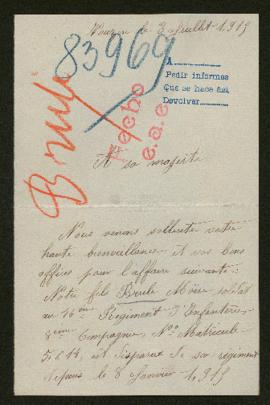 le 3 Juillet 1919
83969
Brulé
A
Pedir informes
Que se hace así
Devolver
Hecho
e.a.e.
A sa majesté
Nous venons solliciter votre
haute bienveillance et vos bons
offices pour l'affaire suivante:
Notre fils Brulé soldat
au Régiment d'Infanterie,
8ème Compagnie, No Matricule
est disparu de son régiment
depuis le 8 Janvier 1919